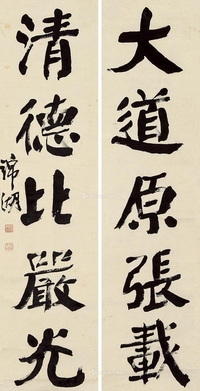 大道原張載
清德比嚴光